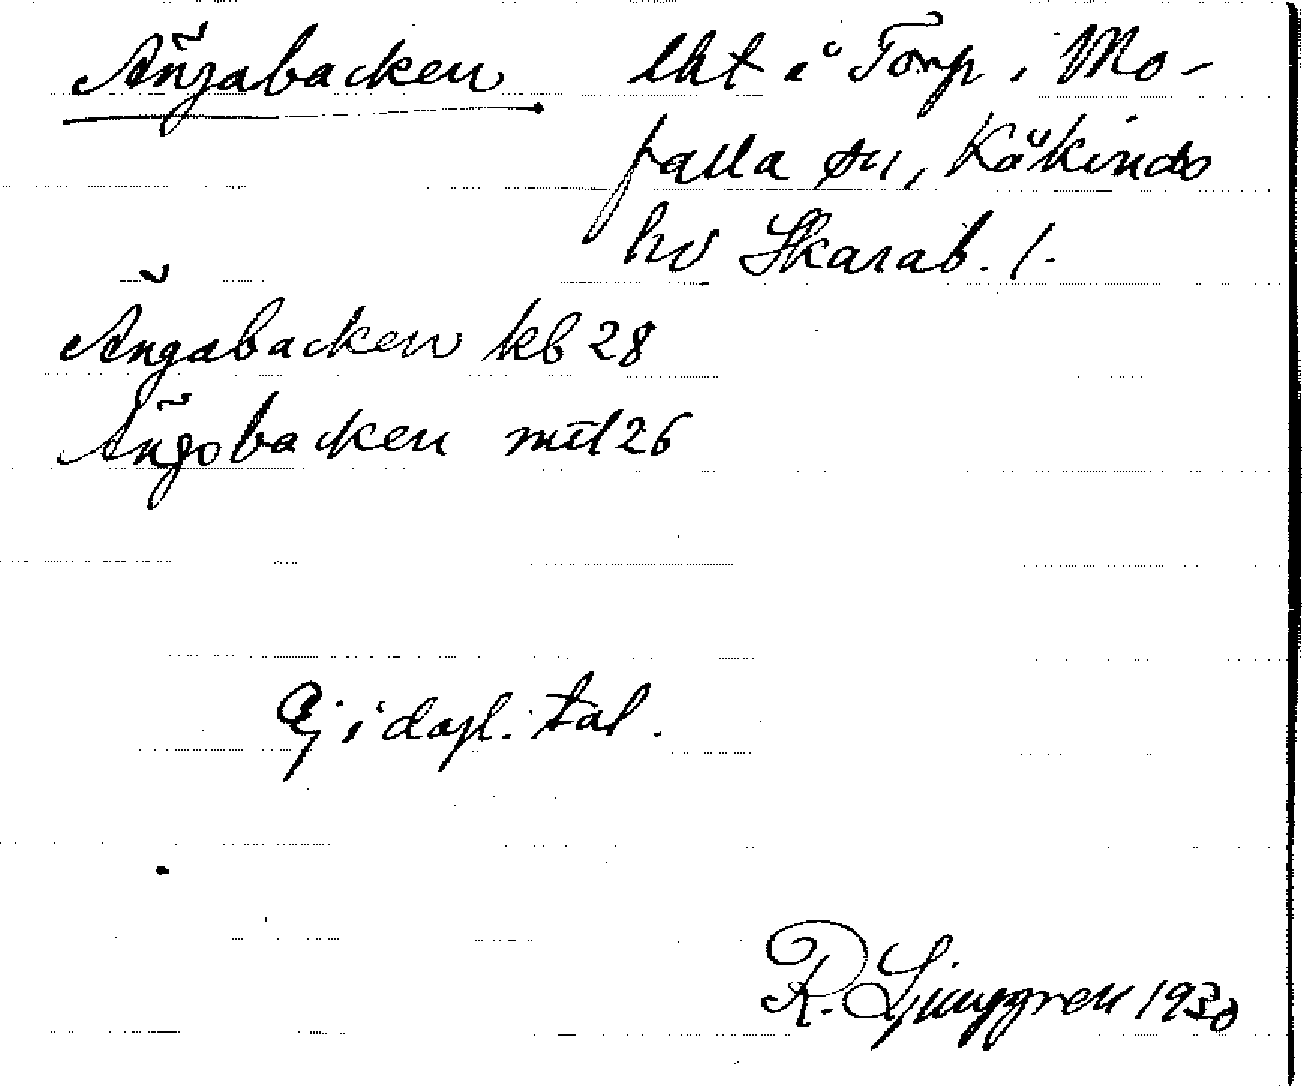 Ängabacken lht i Torp i Mo-
falla sn, Kåkinds
hd Skarab. l.
Ängabacken kb 28
Ängobacken mtl 26
Ej i dagl. tal.
R. Ljunggren 1930